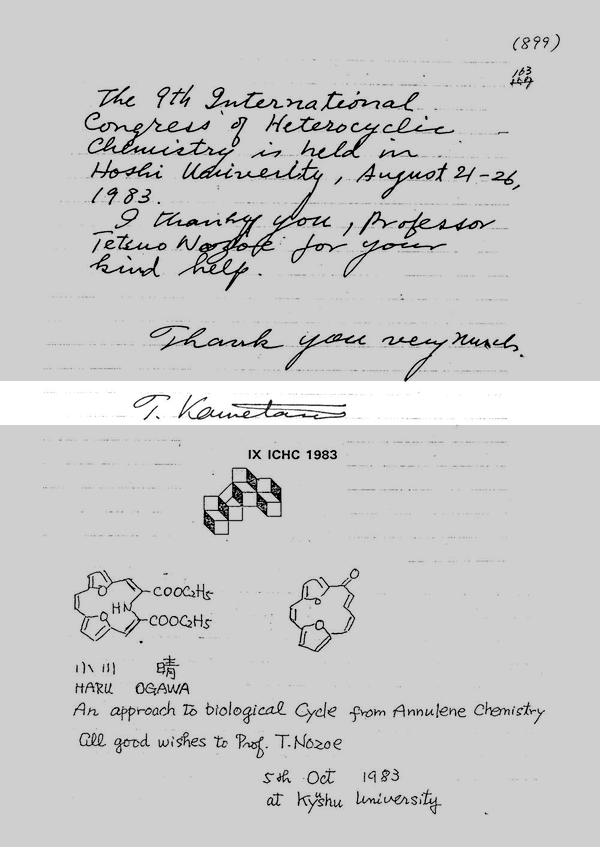 (899)
163
The 9th International
Congress of Heterocyclic
Chemistry is held in
Hoshi University, August 21-26,
1983.
I thank you, Professor
Tetsuo Nozoe for your
kind help.
Thank you very much.
T. Kametani
IX ICHC 1983
O
COOC2H5
HN
O
COOC2H5
O
O
O
小川 晴
HARU OGAWA
An approach to biological Cycle from Annulene Chemistry
All good wishes to Prof. T. Nozoe
5th Oct 1983
at Kyushu University